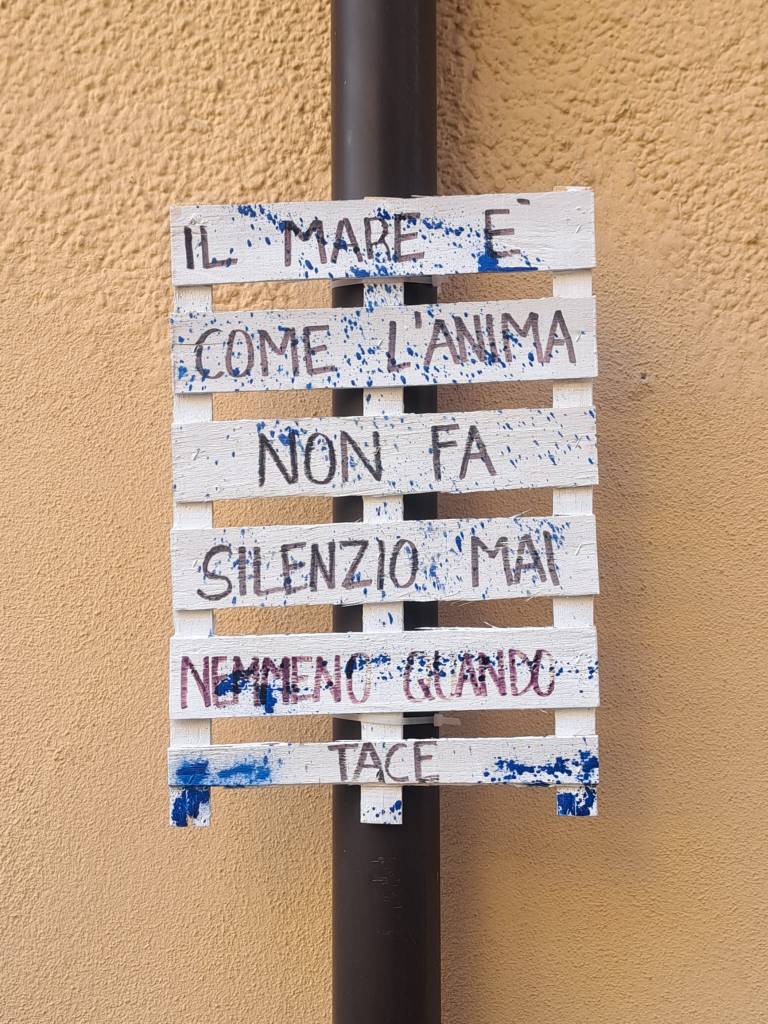 IL MARE È
COME L'ANIMA
NON FA
SILENZIO MAI
NEMMENO QUANDO
TACE